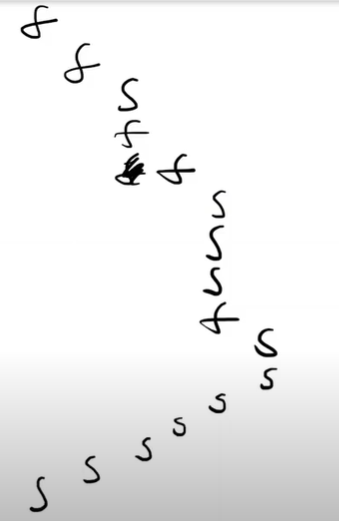 f
f
s
f
f
s
s
s
f
s
s
s
s
s
s
s